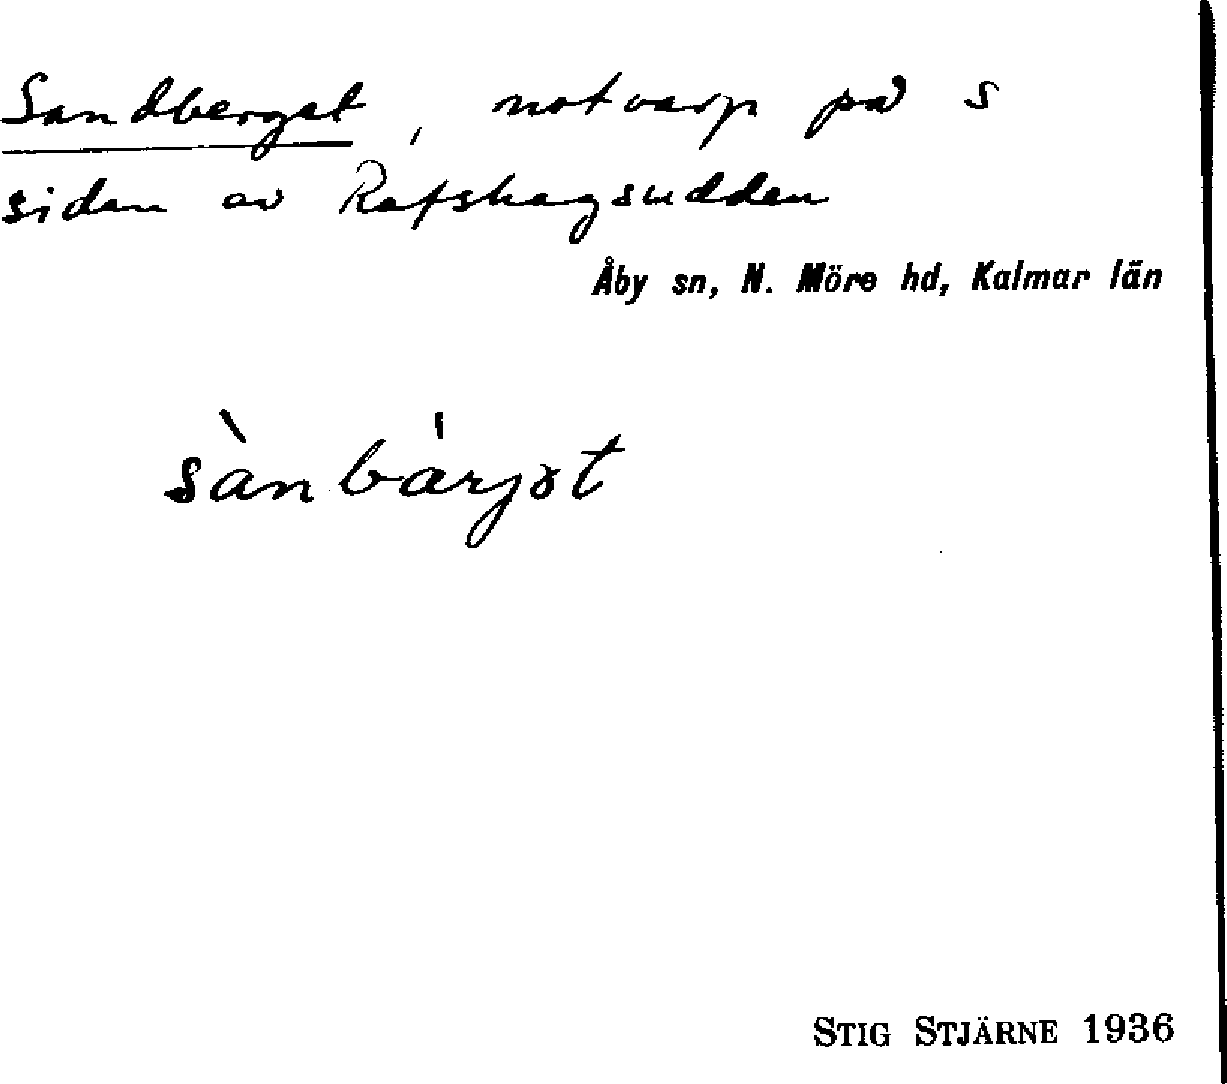 Sandberget, notvarp på S
sidan av Rafshagsudden
Åby sn, N. Möre hd, Kalmar län
sànbárjət
STIG STJÄRNE 1936